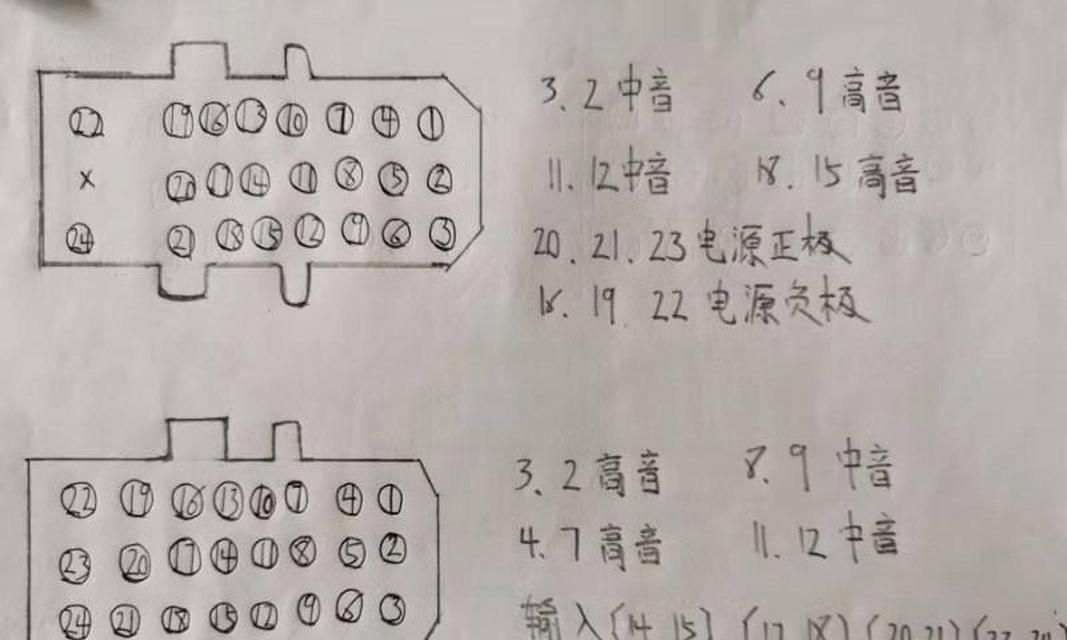 3. 2 中音 6. 9 高音
11. 12 中音 18. 15 高音
20. 21. 23 电源正极
18. 19. 22 电源负极
22 19 16 13 10 7 4 1
× 20 17 14 11 8 5 2
24 21 18 15 12 9 6 3
3. 2 高音 8. 9 中音
4. 7 高音 11. 12 中音
输入(14 15) (17 18) (20 21)
22 19 16 13 10 7 4 1
23 20 17 14 11 8 5 2
24 21 18 15 12 9 6 3